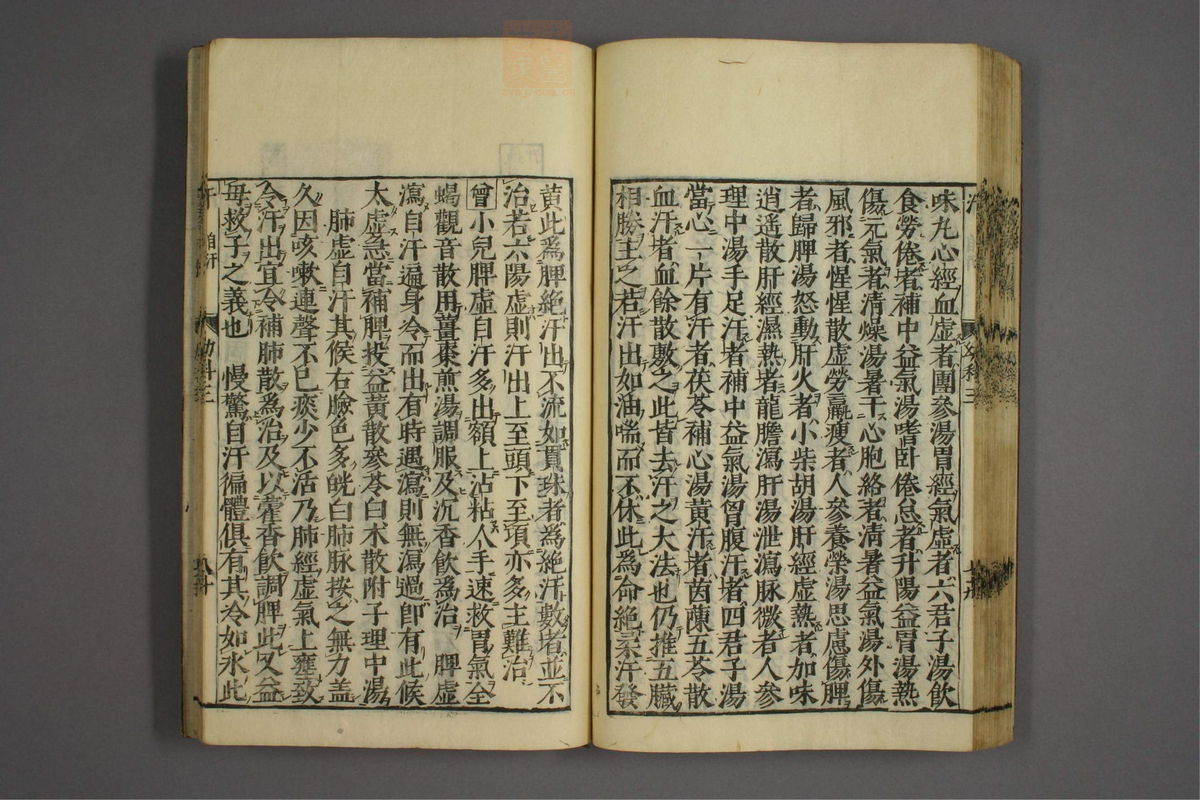 味丸心經血虛者團參湯胃經氣虛者六君子湯飲
食勞倦者補中益氣湯嗜卧倦怠者升陽益胃湯熱
傷元氣者清燥湯暑干心胞絡者清暑益氣湯外傷
風邪者惺惺散虛勞羸瘦者人參養榮湯思慮傷脾
者歸脾湯怒動肝火者小柴胡湯肝經虛熱者加味
逍遥散肝經濕熱者龍膽瀉肝湯泄瀉脉微者人參
理中湯手足汗者補中益氣湯胷腹汗者四君子湯
當心一片有汗者茯苓補心湯黃汗者茵蔯五苓散
血汗者血餘散敷之此皆去汗之大法也仍推五臟
相勝主之若汗出如油喘而不休此爲命絕柔汗發
黄此爲脾絕汗出不流如貫珠者爲絕汗數者並不
治若六陽虛則汗出上至頭下至項亦多主難治
曾小兒脾虛自汗多出額上沾粘人手速救胃氣全
蝎觀音散用薑棗煎湯調服及沉香飲爲治 脾虛
瀉自汗遍身冷而出有時遇瀉則無瀉過卽有此候
太虛急當補脾投益黃散參苓白朮散附子理中湯
肺虛自汗其候右臉色多㿠白肺脉按之無力盖
久因咳嗽連聲不已痰少不活乃肺經虛氣上壅致
令汗出宜令補肺散爲治及以藿香飲調脾此又益
母救子之義也 慢驚自汗徧體俱有其冷如水此
汗 自汗 幼科三